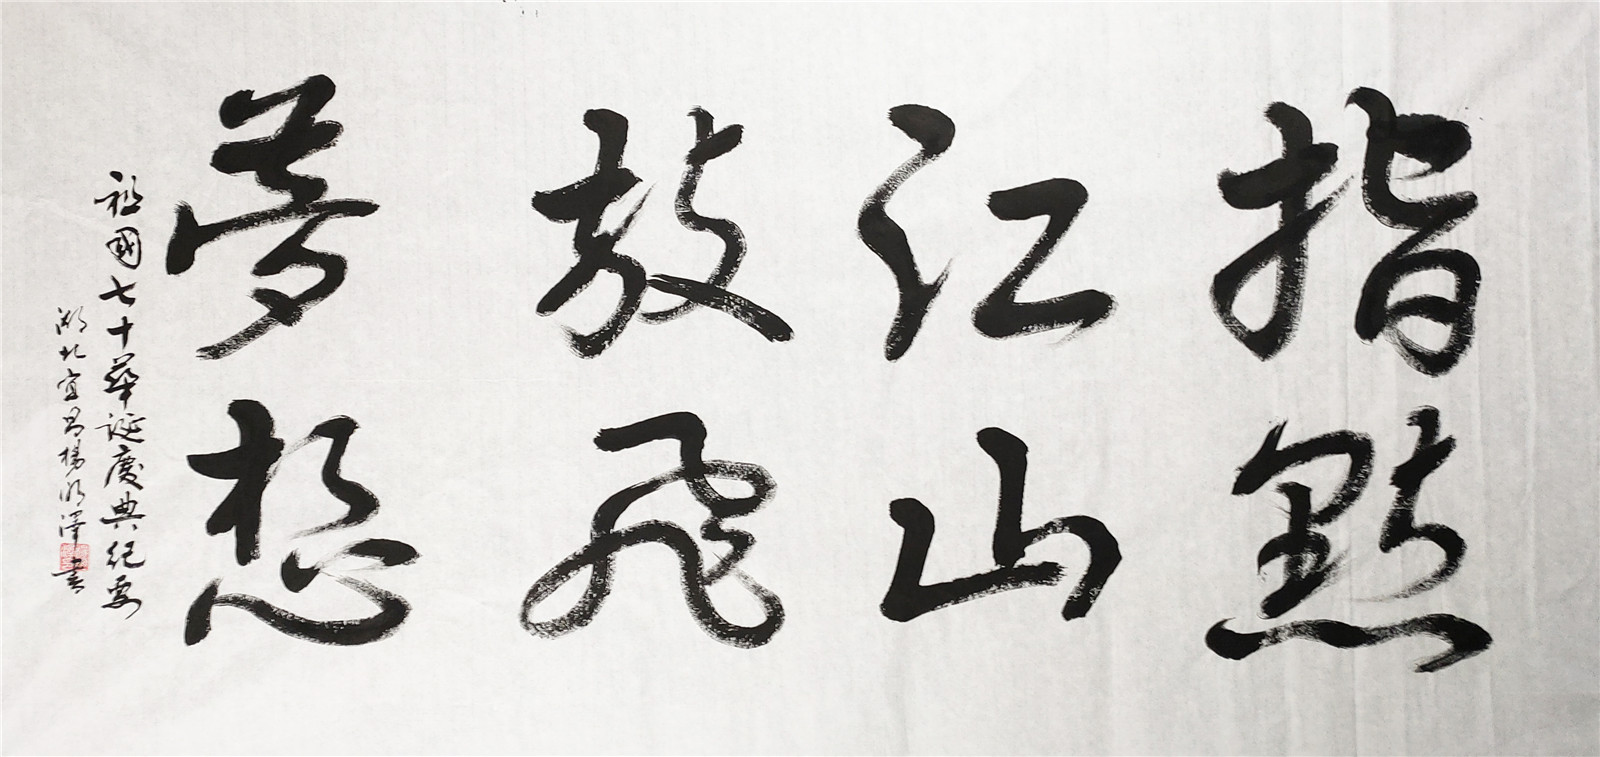 指點
江山
放飛
夢想
祖國七十華誕慶典紀要
湖北宜昌楊明澤書